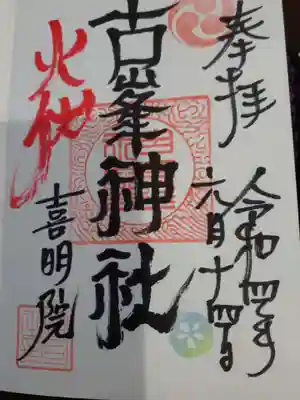 奉拝
令和四年
六月十四日
古峯神社
火秘
喜明院